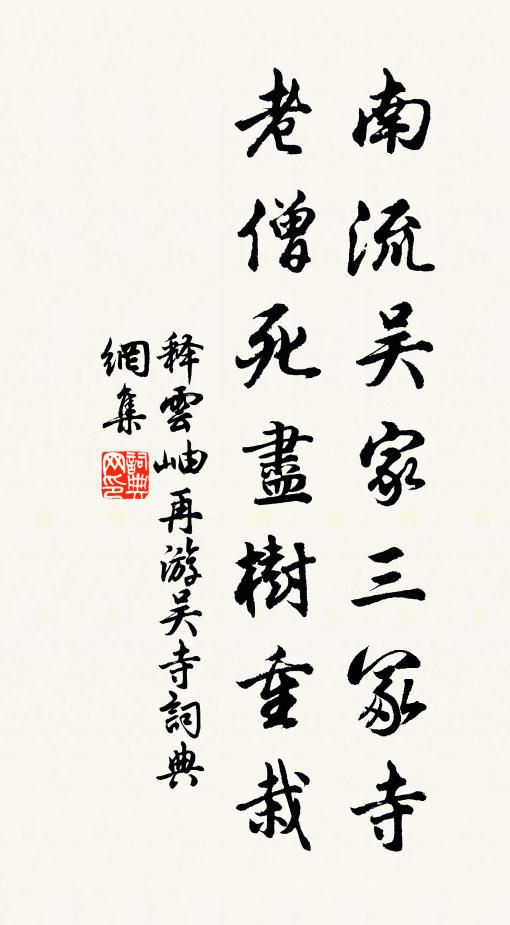 南流吴家三冢寺
老僧死盡樹重栽
释雲岫再游吴寺詞典
網集
詞典网印